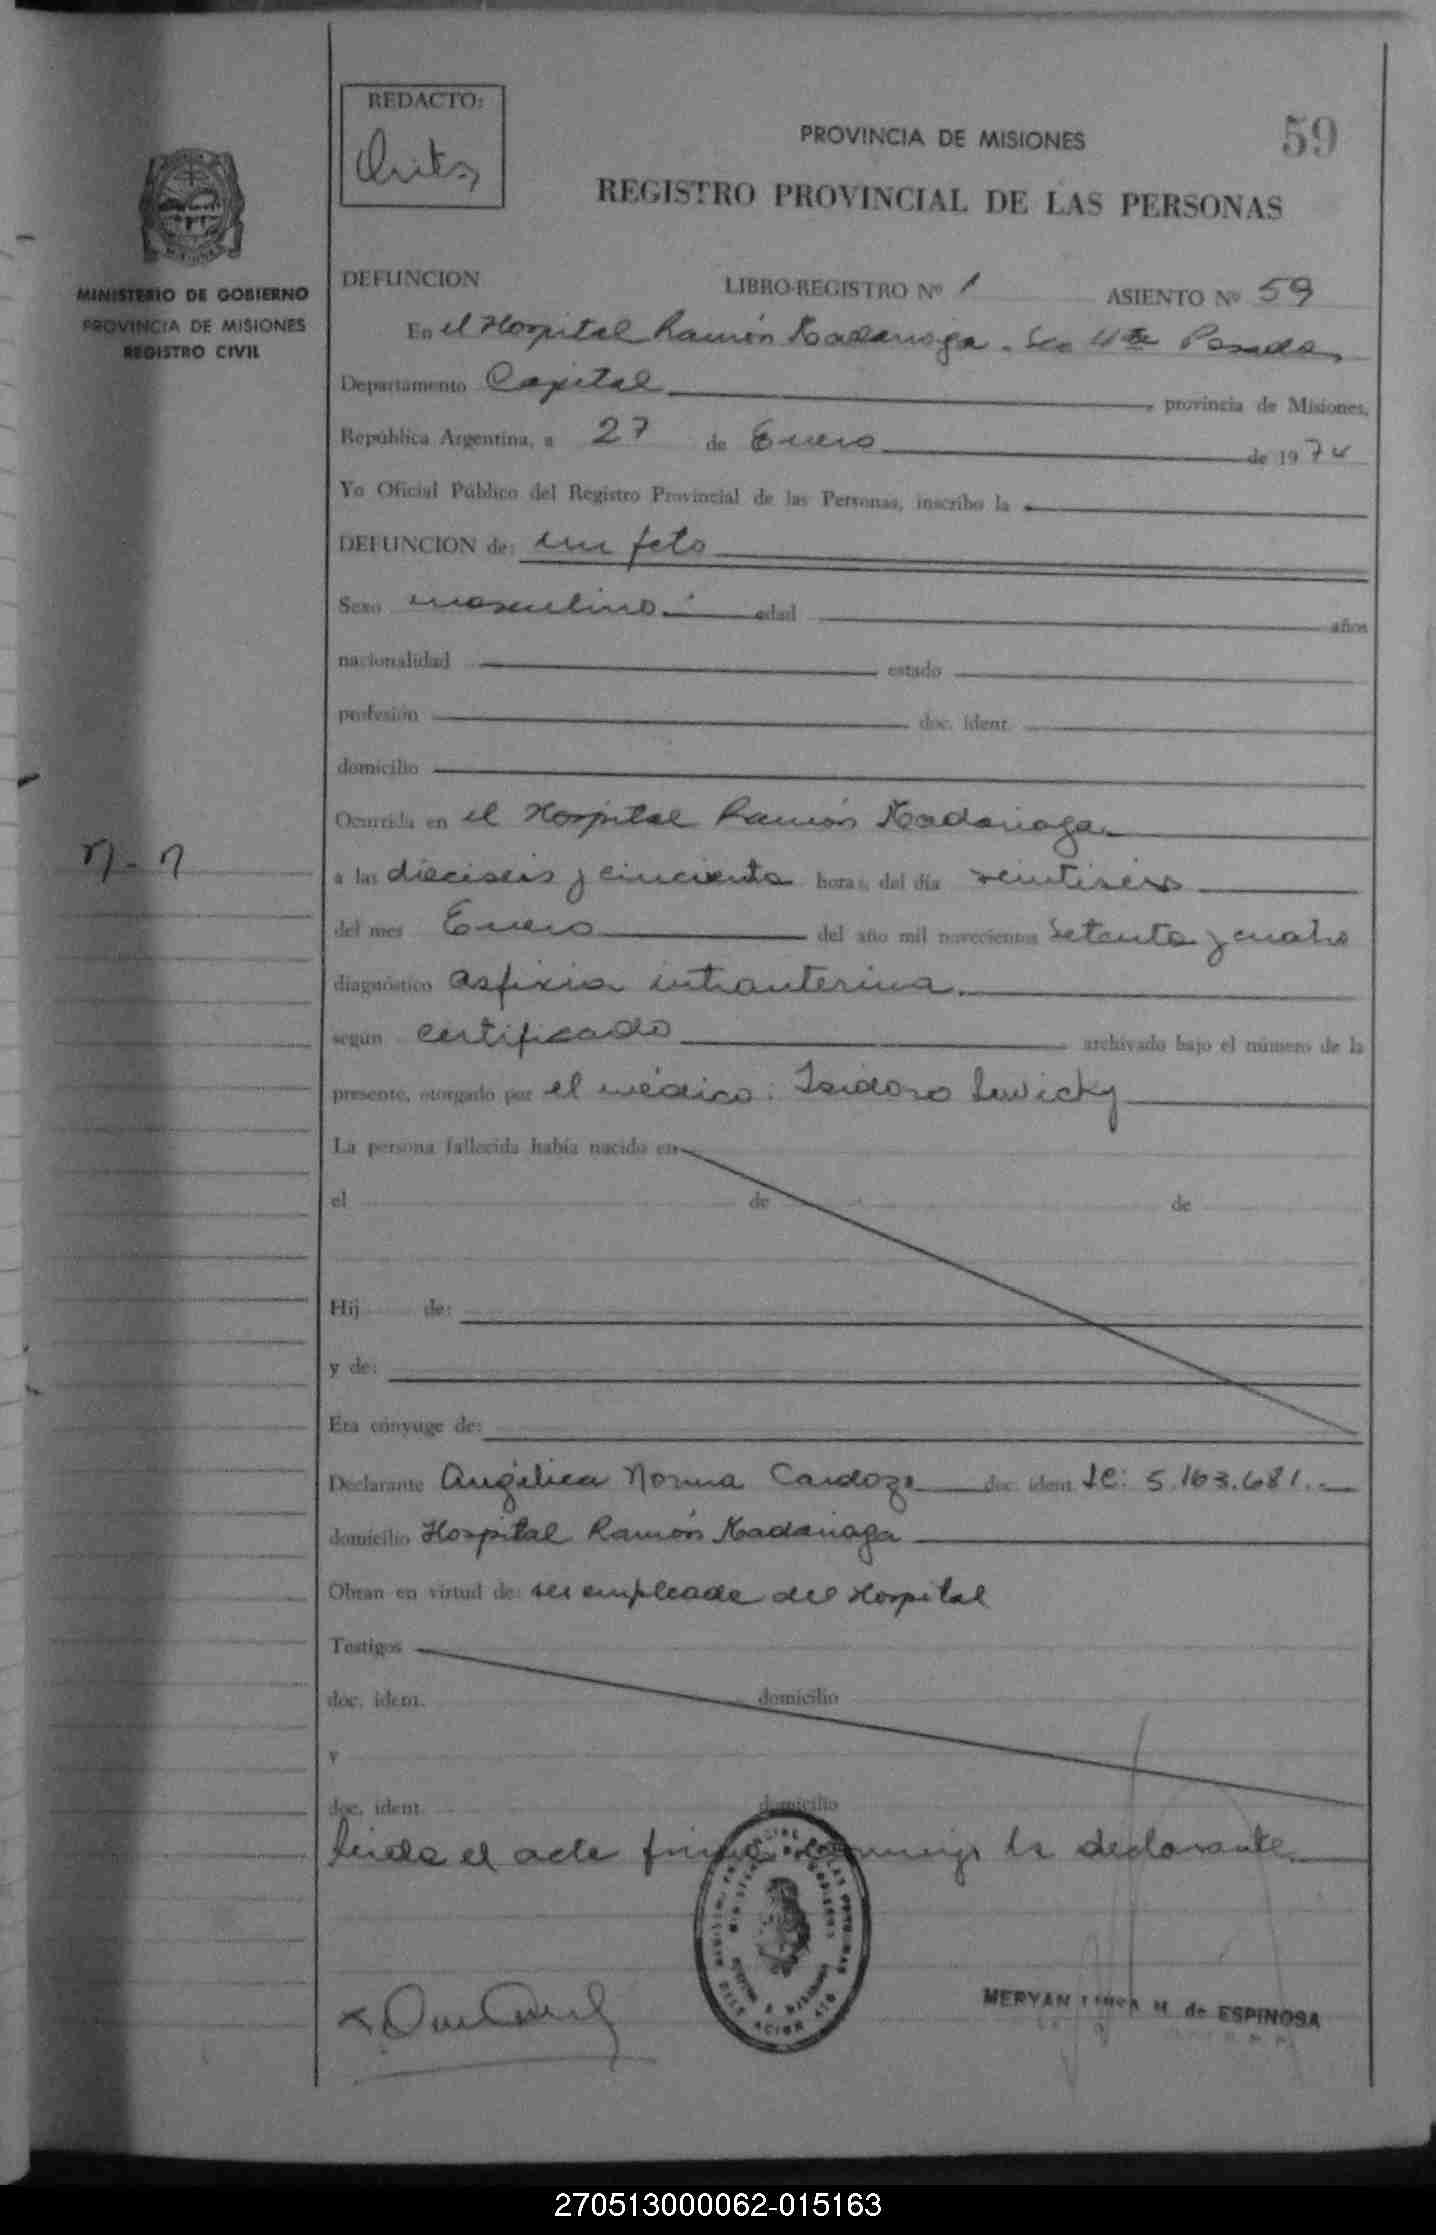 REDACTO:
59
PROVINCIA DE MISIONES
REGISTRO PROVINCIAL DE LAS PERSONAS
MISIONES
MINISTERIO DE GOBIERNO
PROVINCIA DE MISIONES
REGISTRO CIVIL
DEFUNCION LIBRO-REGISTRO Nº 1 ASIENTO Nº 59
En el Hospital Ramón Madariaga - Sec 4ta Posadas
Departamento Capital, provincia de Misiones,
República Argentina, a 27 de Enero de 1974
Yo Oficial Público del Registro Provincial de las Personas, inscribo la
DEFUNCION de: un feto
Sexo masculino.- edad años
nacionalidad estado
profesión doc. ident.
domicilio
Ocurrida en el Hospital Ramón Madariaga
n-n
a las dieciseis y cincuenta horas, del día veintiseis
del mes Enero del año mil novecientos setenta y cuatro
diagnóstico asfixia intrauterina.
según certificado archivado bajo el número de la
presente, otorgado por el médico: Isidoro Lewicky
La persona fallecida había nacido en
el de de
Hij de:
y de:
Era cónyuge de:
Declarante Angélica Norma Cardozo doc. ident. LC: 5.163.681.-
domicilio Hospital Ramón Madariaga
Obran en virtud de: ser empleada del Hospital
Testigos
doc. ident. domicilio
y
doc. ident. domicilio
leida el acta firma conmigo la declarante
MERYAN M. de ESPINOSA
270513000062-015163